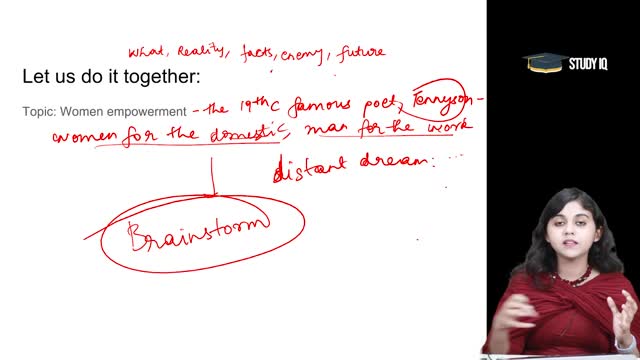 What, Reality, facts, enemy, future
STUDY IQ
Let us do it together:
Topic: Women empowerment - the 19th C famous poet, Tennyson -
women for the domestic, man for the work
distant dream: ...
Brainstorm